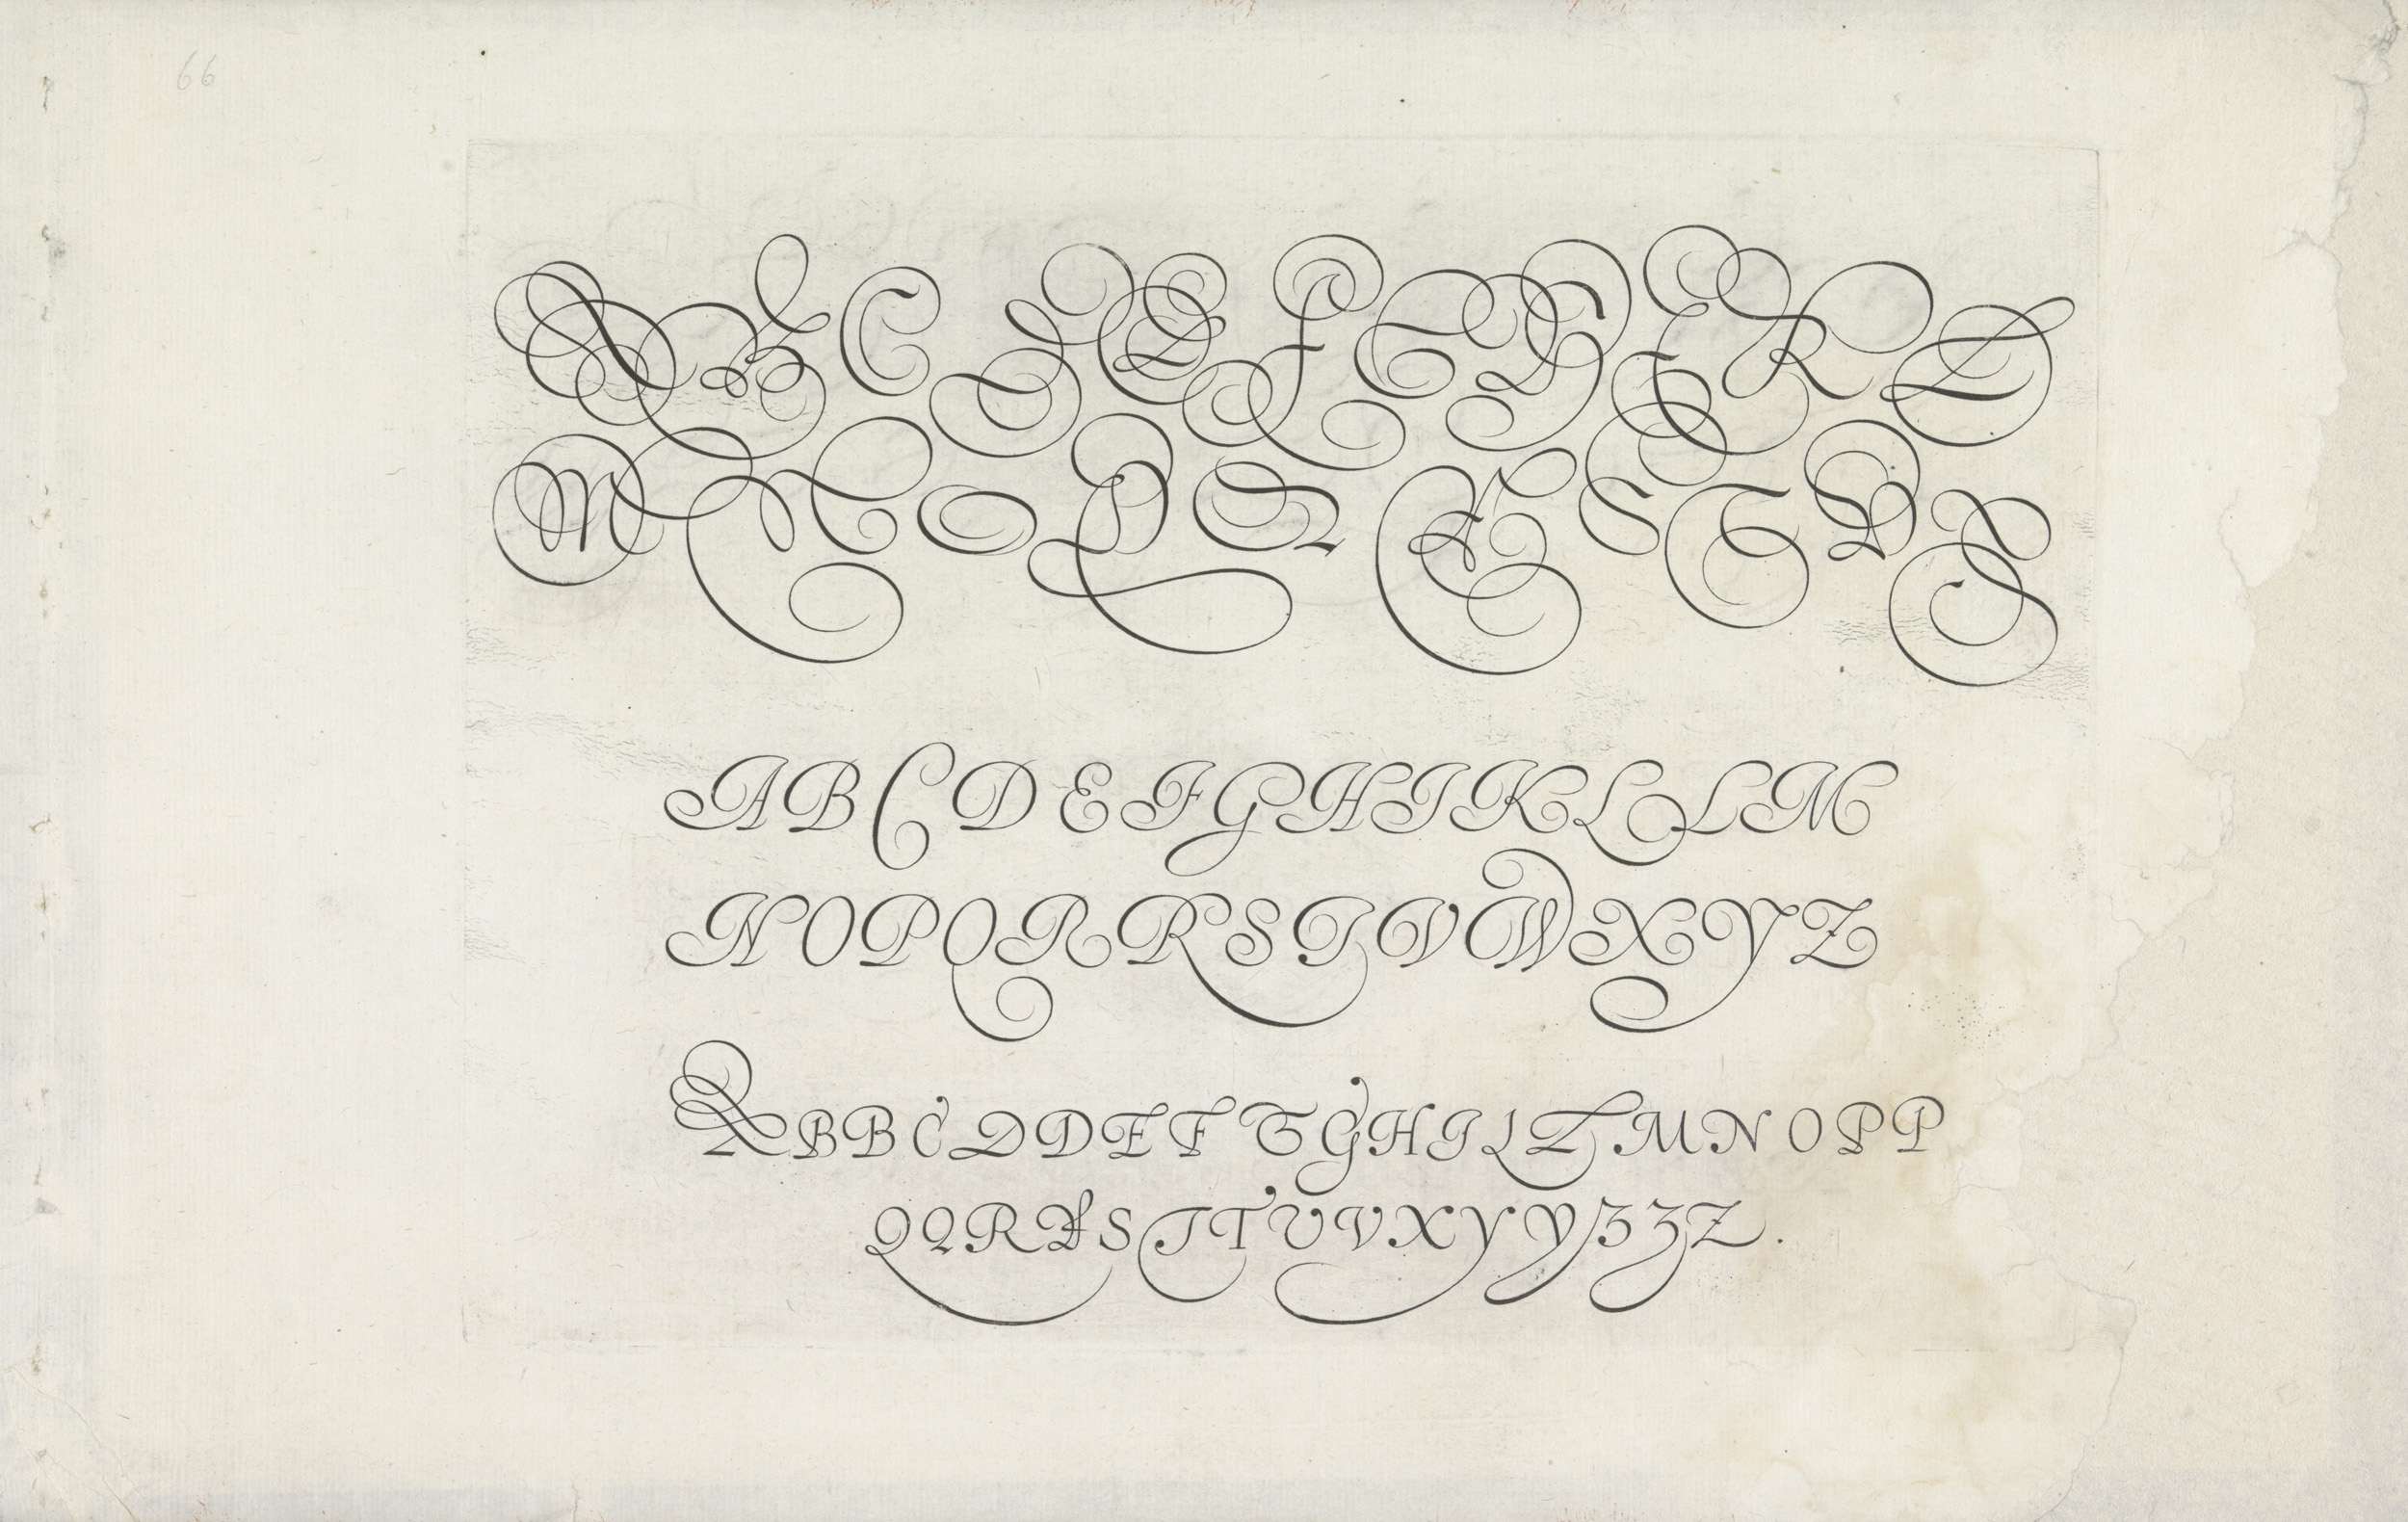 66
A B C D E F G H I K L
M N O P Q R S T V X
A B C D E F G H I K L L M
N O P Q R R S T V W X Y Z
A B B C D D E F G G H I L L M N O P P
Q Q R R S T T U V X Y Y Z Z Z .